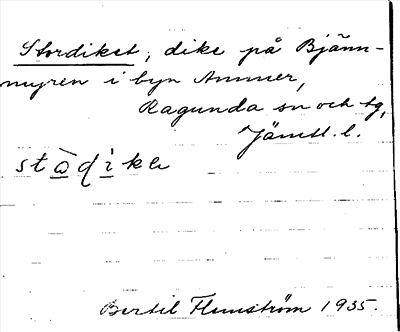 Stordiket, dike på Bjänn-
myren i byn Ammer,
Ragunda sn och tg,
Jämtl. l.
stòdike
Bertil Flemström 1935.